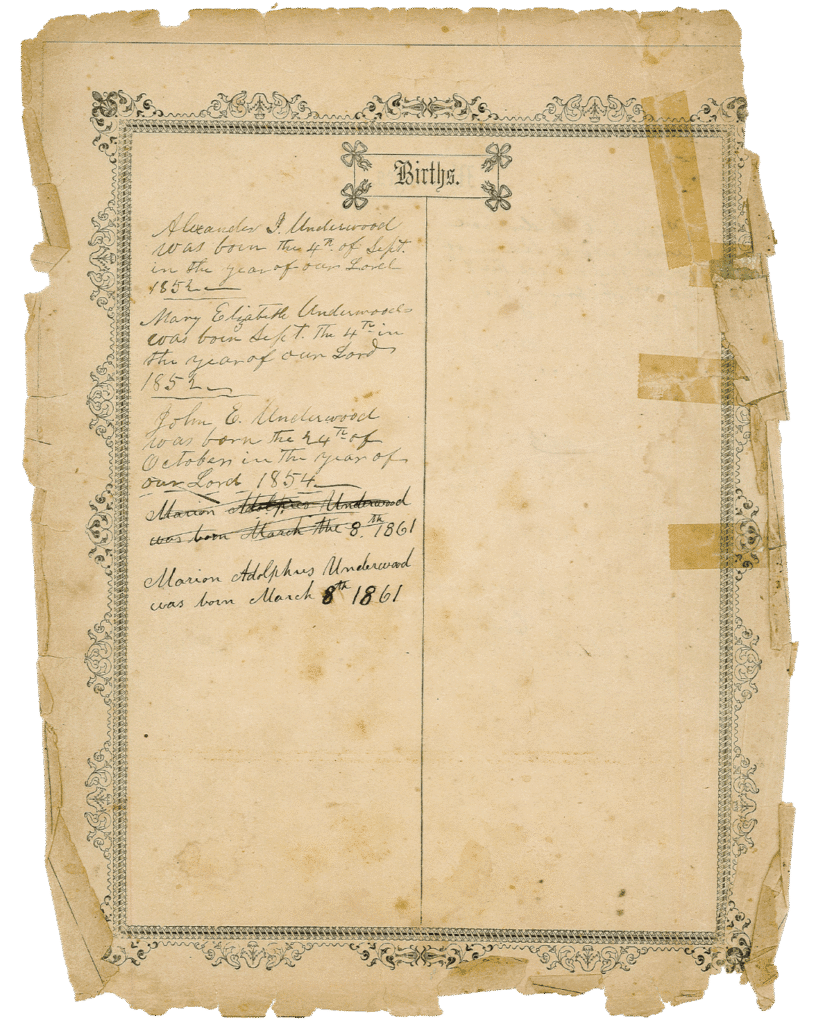 Births.
Alexander J. Underwood
was born the 4th. of Sept.
in the year of our Lord
1852
Mary Elizabeth Underwood
was born Sept. the 4th in
the year of our Lord
1852
John E. Underwood
was born the 24th of
October in the year of
our Lord 1854
Marion Adolphus Underwood
was born March the 8.th 1861
Marion Adolphus Underwood
was born March 8th 1861